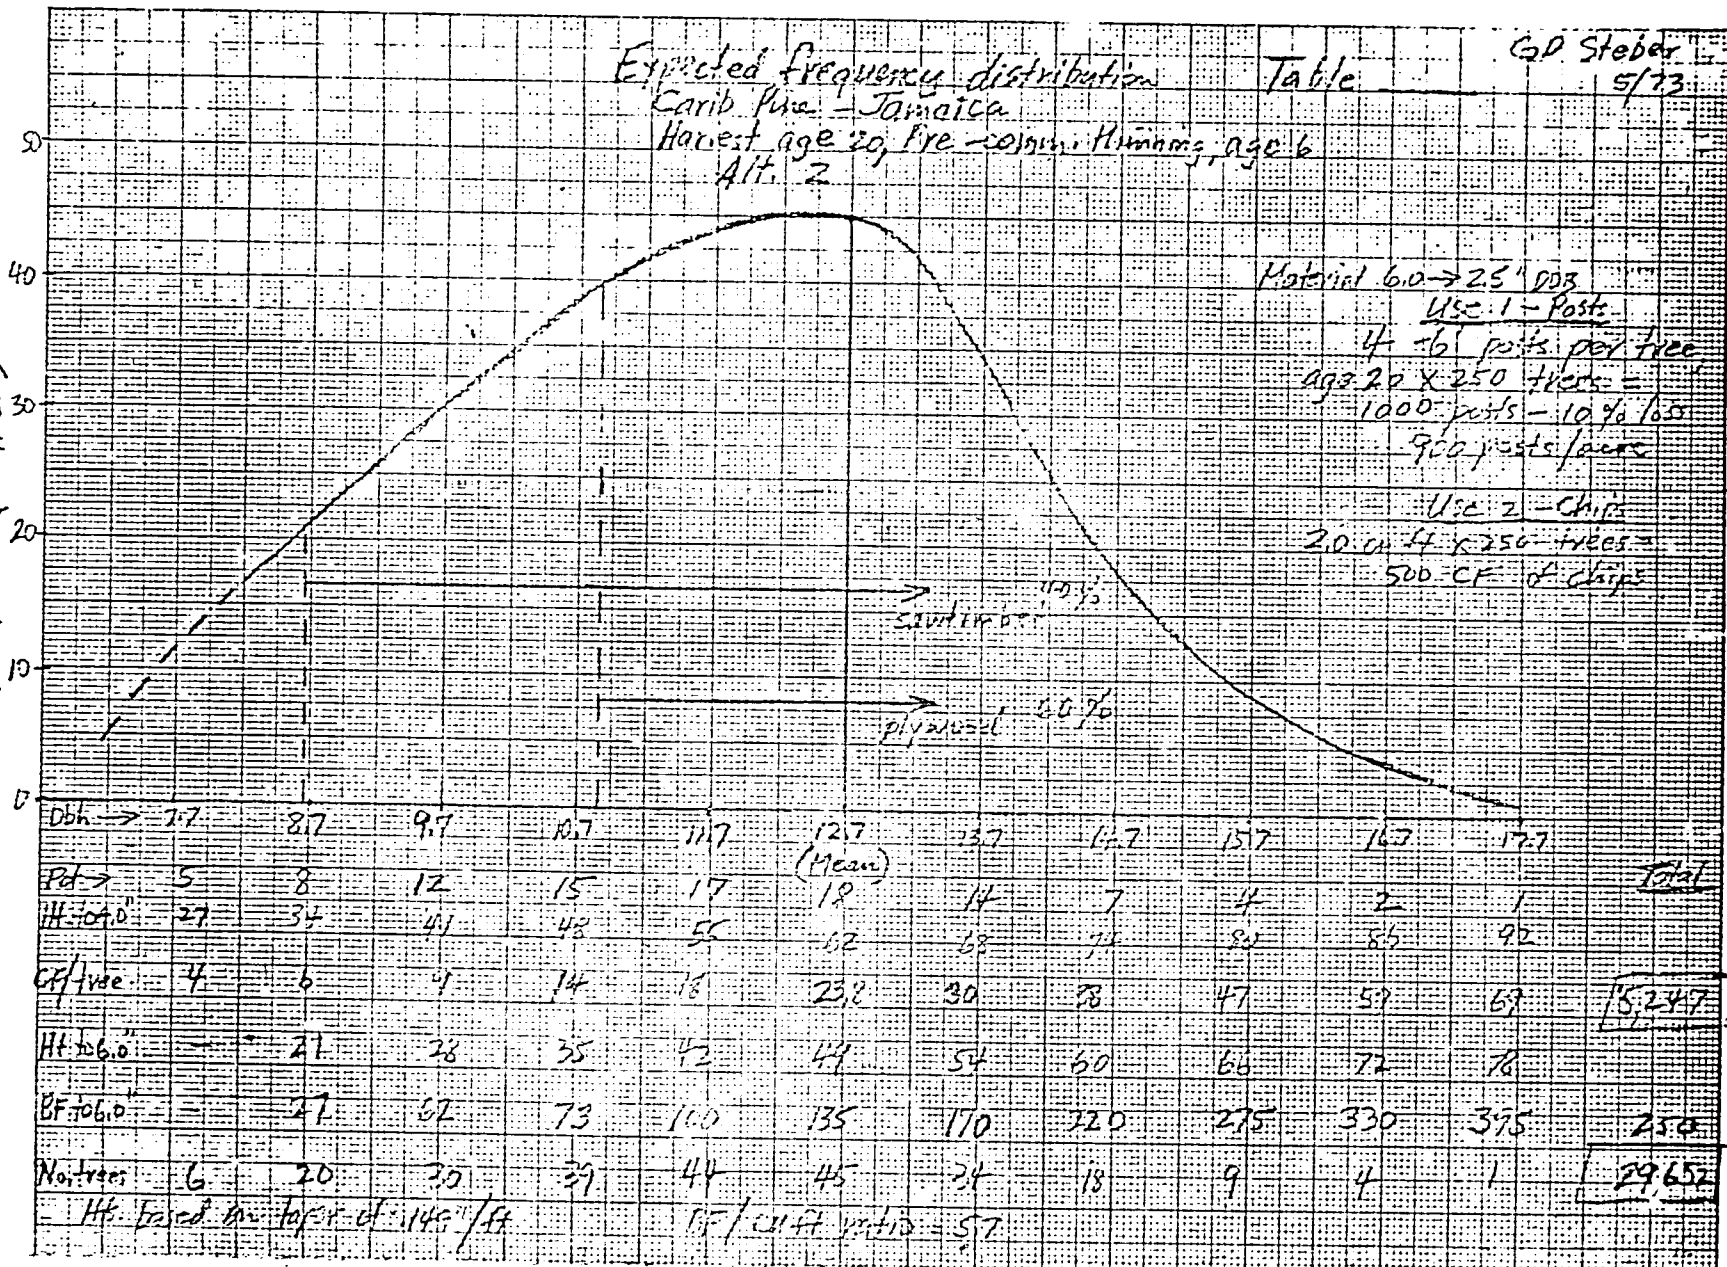 GD Steber
5/73
Expected frequency distribution
Table
Carib Pine - Jamaica
Harvest age 20, Pre-comm. thinning, age 6
Alt. 2
50
40
30
20
10
0
Material 6.0 → 2.5" DOB
Use 1 - Posts
4 - 6' posts per tree,
age 20 X 250 trees =
1000 posts - 10% loss
900 posts/acre
Use 2 - Chips
2.0 cu ft x 250 trees =
500 CF of chips
sawtimber
plywood 60%
Dbh → 7.7 8.7 9.7 10.7 11.7 12.7 13.7 14.7 15.7 16.7 17.7
(Mean)
Total
Pct → 5 8 12 15 17 18 14 7 4 2 1
27 34 41 48 55 62 68 80 86 92
CF/tree 4 6 14 18 30 38 47 57 69 5,247
Ht to 6.0" - 21 28 35 42 49 54 60 66 72 78
BF to 6.0" - 27 62 73 100 135 170 220 275 330 395 250
No. trees 6 20 30 39 44 45 34 18 9 4 1 29,652
Hts. based on taper of /ft BF/cu ft ratio = 5.7